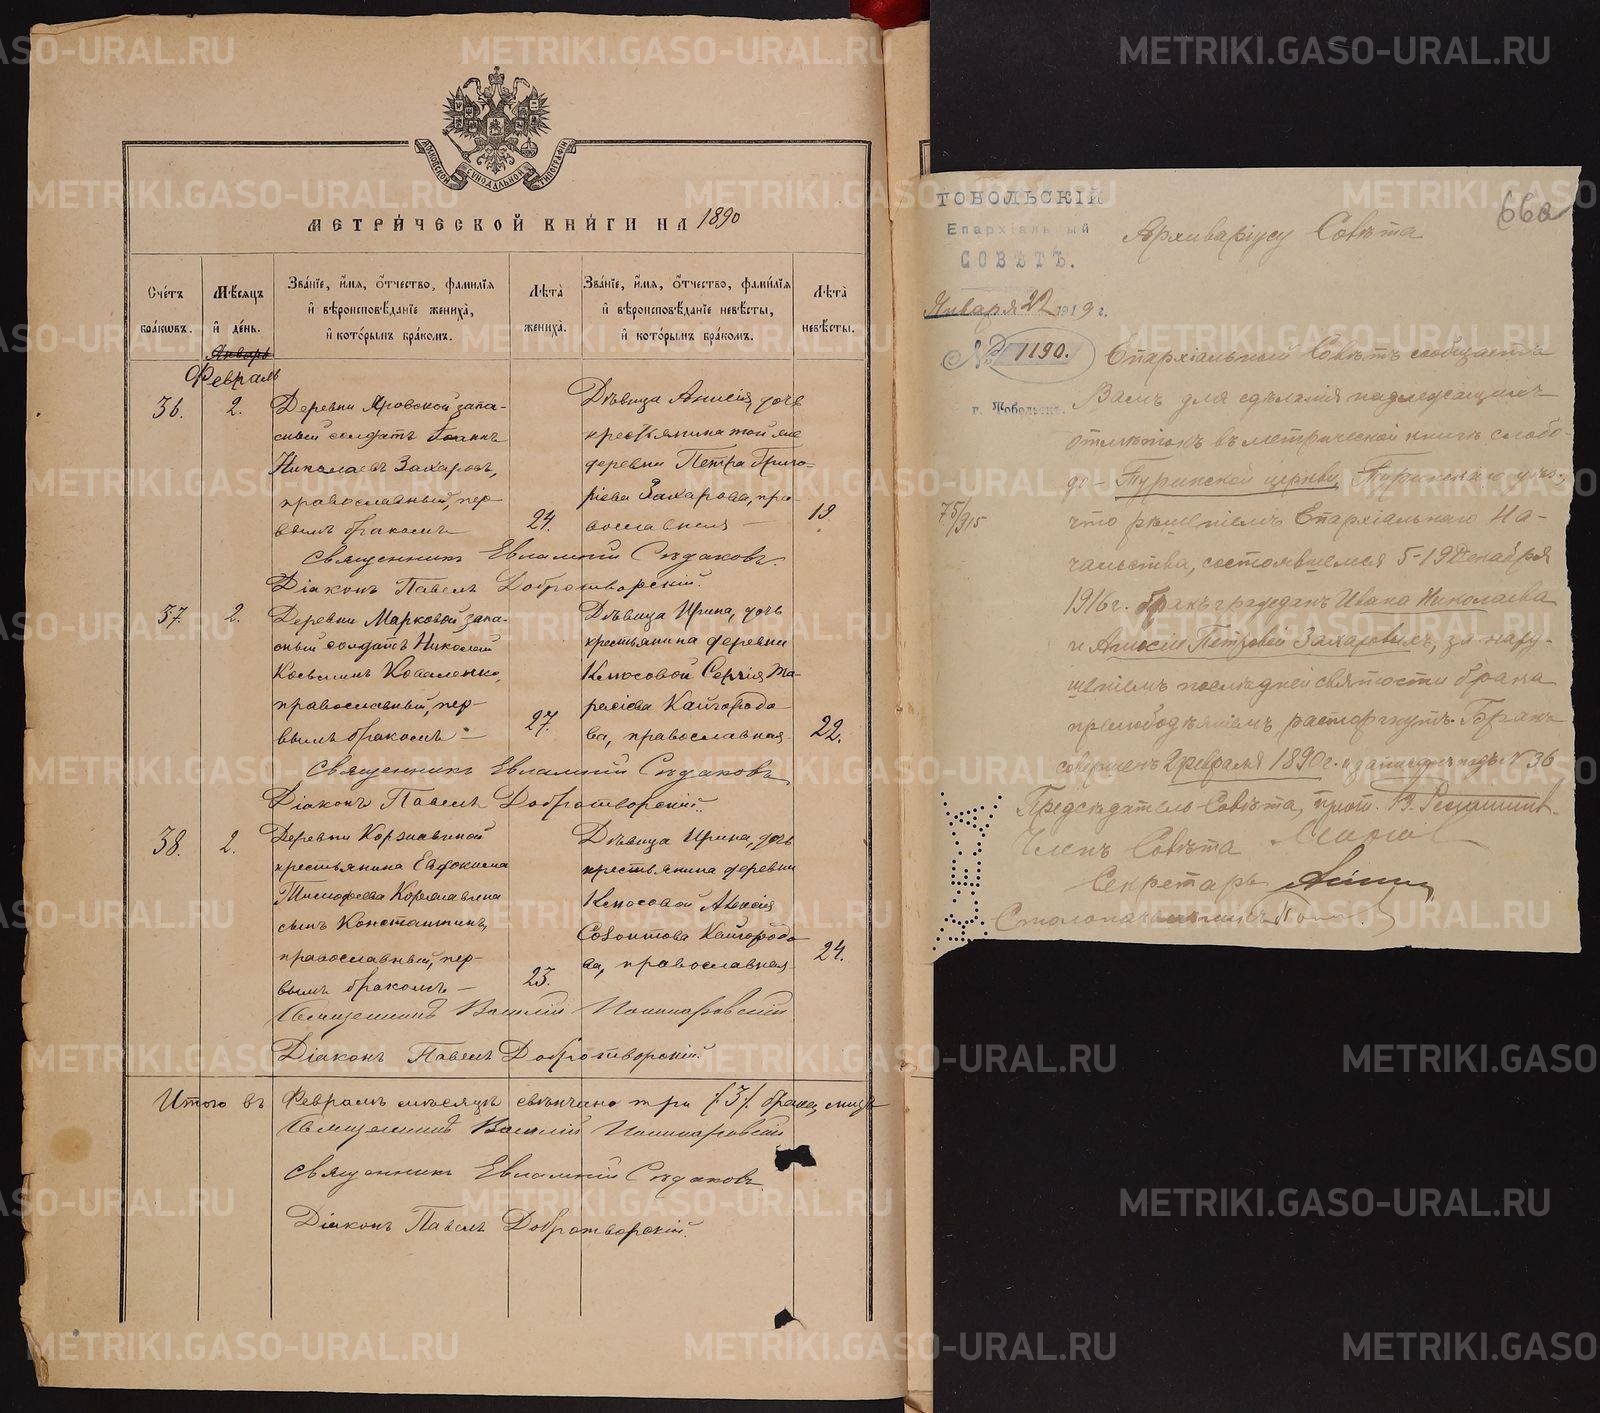 METRIKI.GASO-URAL.RU
ДУХОВНОЙ СУНОДАЛЬНОЙ ТИПОГРАФІИ
МЕТРИ́ЧЕСКОЙ КНИ́ГИ НА 1890
Сче́тъ бра́ковъ.
Мѣ́сяцъ и҆ де́нь.
Зва́нїе, и҆́мя, ѻ҆́тчество, фами́лїя и҆ вѣроисповѣ́данїе жениха̀, и҆ кото́рымъ бра́комъ.
Лѣ́та жениха̀.
Зва́нїе, и҆́мя, ѻ҆́тчество, фами́лїя и҆ вѣроисповѣ́данїе невѣ́сты, и҆ кото́рымъ бра́комъ.
Лѣ́та невѣ́сты.
Январь
Февраль
36. 2.
Деревни Яровской запа-
сный солдатъ Іоаннъ
Николаевъ Захаровъ,
православный, пер-
вымъ бракомъ
24.
Дѣвица Анисія, дочь
крестьянина той же
деревни Петра Григо-
ріева Захарова, пра-
вославная
19.
Священникъ Евлампій Судаковъ.
Діаконъ Павелъ Добротворскій.
37. 2.
Деревни Марковой запа-
сный солдатъ Николай
Косьминъ Коваленко,
православный, пер-
вымъ бракомъ
27.
Дѣвица Ирина, дочь
крестьянина деревни
Кекосовой Сергія Та-
расіева Кайгородо
ва, православная
22.
Священникъ Евлампій Судаковъ
Діаконъ Павелъ Добротворскій.
38. 2.
Деревни Коржавиной
крестьянина Евдокима
Тимофеева Коржавина
сынъ Константинъ,
православный, пер-
вымъ бракомъ
23.
Дѣвица Ирина, дочь
крестьянина деревни
Кекосовой Алексія
Созонтова Кайгородо
ва, православная
24.
Священникъ Василій
Діаконъ Павелъ Добротворскій.
Итого въ Февралѣ мѣсяцѣ свѣнчано три /3/. брака,
Священникъ Василій
Священникъ Евлампій Судаковъ.
Діаконъ Павелъ Добротворскій.
ТОБОЛЬСКІЙ
Епархіальный
СОВѢТЪ.
Января 22 1919 г.
№ 1190.
г. Тобольскъ.
75/915
660
Архиваріусу Совѣта
Епархіальный Совѣтъ сообщаетъ
Вамъ для сдѣланія надлежащихъ
отмѣтокъ въ метрической книгѣ слобо-
до-Туринской церкви, Туринскаго уѣз.,
что рѣшеніемъ Епархіальнаго На-
чальства, состоявшемся 5-19 Декабря
1916 г. бракъ гражданъ Ивана Николаева
и Анисіи Петровой Захаровыхъ, за нару-
шеніемъ последней святости брака
прелюбодѣяніемъ расторгнутъ. Бракъ
совершенъ 2 февраля 1890 г. и записанъ подъ № 36
Предсѣдатель Совѣта, прот.
Членъ Совѣта
Секретарь
Столоначальникъ